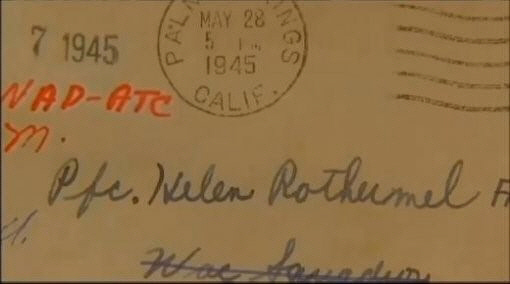 7 1945
PALM SPRINGS
MAY 28
1945
CALIF.
NAD-ATC
M.
Pfc. Helen Rothermel
Wac Squadron